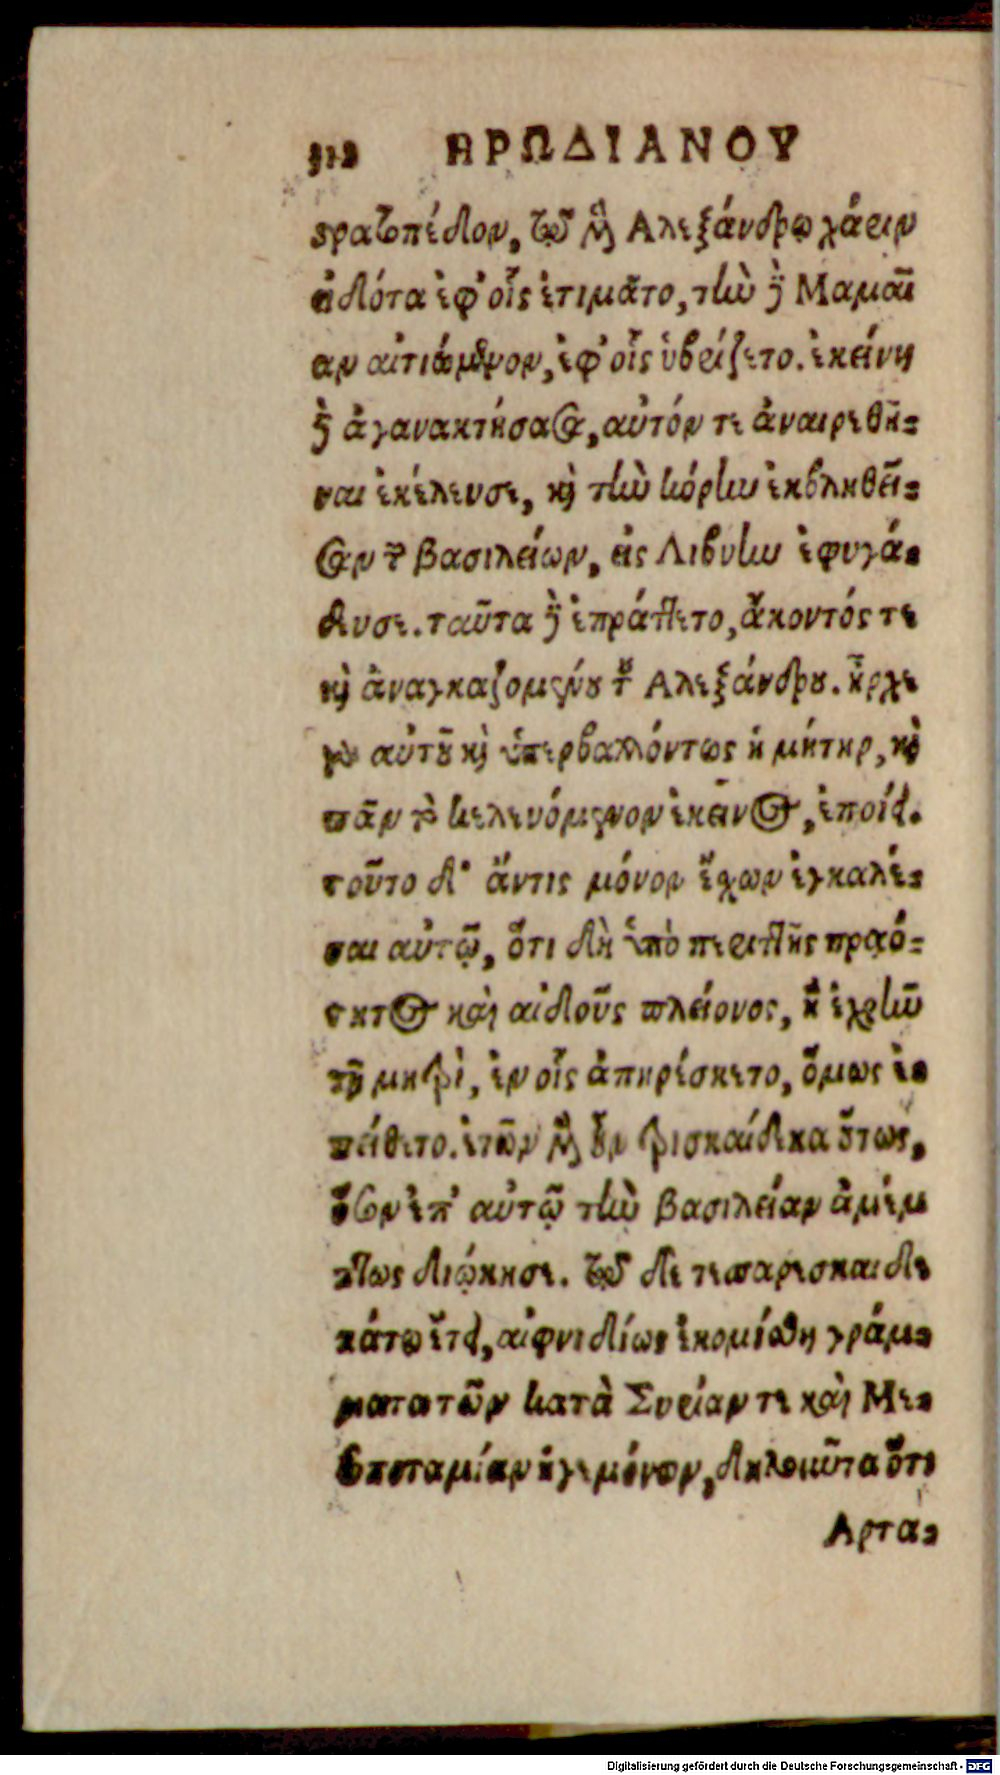 312 ΗΡΩΔΙΑΝΟΥ
στρατοπέδον, τῷ μὲν Αλεξάνδρῳ χάριν
εἰδότα ἐφ' οἷς ἐτιμᾶτο, τὴν δὲ Μαμαῖ
αν αἰτιώμενον, ἐφ' οἷς ὑβρίζετο. ἐκείνη
δὲ ἀγανακτήσασα, αὐτόν τε ἀναιρεθῆ-
ναι ἐκέλευσε, καὶ τὴν κόρην ἐκβληθεῖ-
σαν τῶν βασιλείων, εἰς Λιβύην ἐφυγά-
δευσε. ταῦτα δὲ ἐπράττετο, ἄκοντός τε
καὶ ἀναγκαζομένου τοῦ Αλεξάνδρου. ἦρχε
γὰρ αὐτοῦ καὶ ὑπερβαλλόντως ἡ μήτηρ, καὶ
πᾶν τὸ κελευόμενον ἐκεῖνος, ἐποίει.
τοῦτο δ' ἄντις μόνον ἔχων ἐγκαλέ-
σαι αὐτῷ, ὅτι δὴ ὑπὸ περιττῆς πραό-
τητος καὶ αἰδοῦς πλείονος, ἢ ἐχρῆν
τῇ μητρὶ, ἐν οἷς ἀπηρέσκετο, ὅμως ἐ-
πείθετο. ἐτῶν μὲν οὖν τρισκαίδεκα οὕτως,
ὅσον ἐπ' αὐτῷ τὴν βασιλείαν ἀμέμ
πτως διῴκησε. τῷ δὲ τεσσαρεσκαιδε
κάτῳ ἔτει, αἰφνιδίως ἐκομίσθη γράμ-
ματα τῶν κατὰ Συρίαν τε καὶ Με-
σοποταμίαν ἡγεμόνων, δηλοῦντα ὅτι
Αρτα-
Digitalisierung gefördert durch die Deutsche Forschungsgemeinschaft - DFG